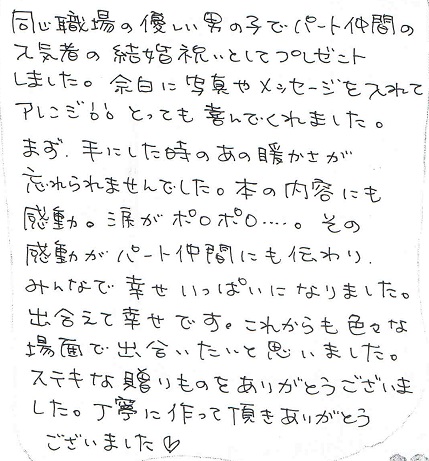 同じ職場の優しい男の子でパート仲間の
人気者の結婚祝いとしてプレゼント
しました。余白に写真やメッセージを入れて
アレンジ!! とっても喜んでくれました。
まず、手にした時のあの暖かさが
忘れられませんでした。本の内容にも
感動。涙がポロポロ‥‥。その
感動がパート仲間にも伝わり、
みんなで幸せいっぱいになりました。
出合えて幸せです。これからも色々な
場面で出合いたいと思いました。
ステキな贈りものをありがとうございま
した。丁寧に作って頂きありがとう
ございました♡